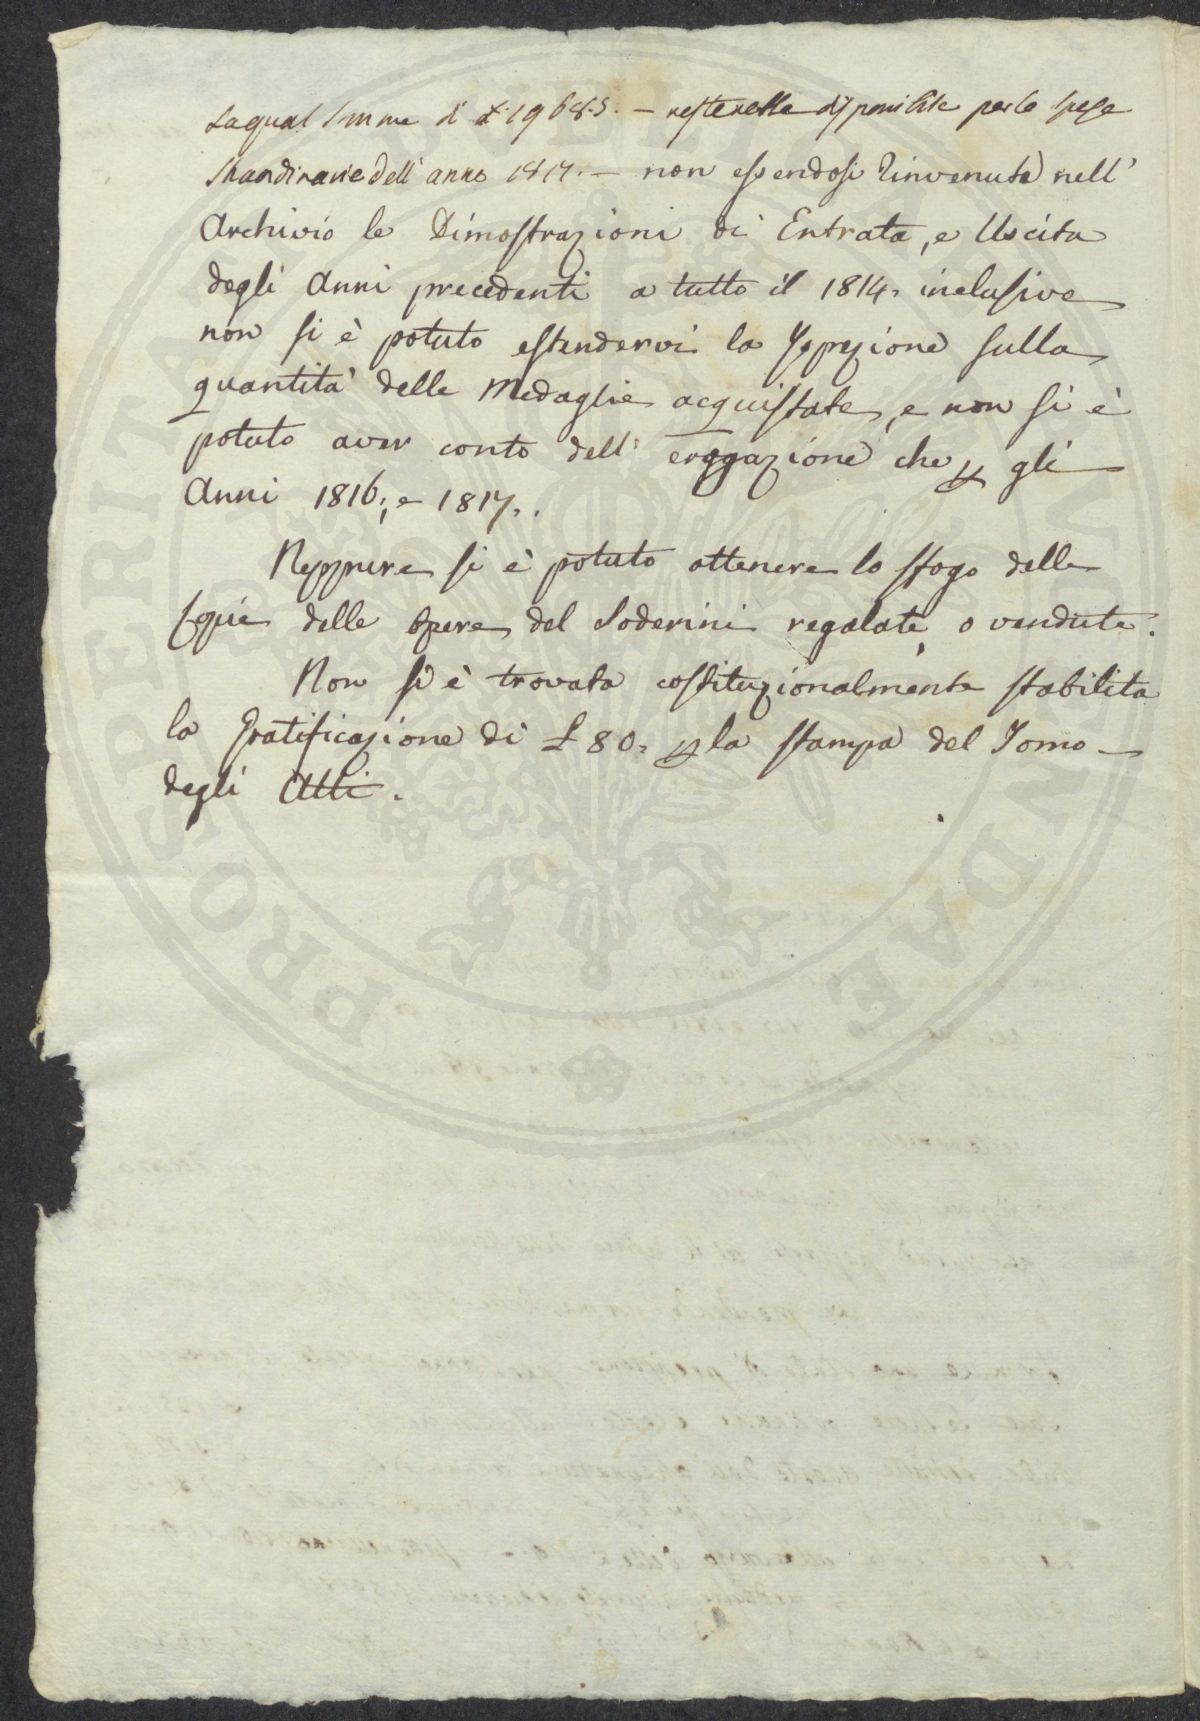 La qual somme di £ 1968.5. — resterebbe disponibile per le spese
straordinarie dell'anno 1817. — non essendosi rinvenute nell'
Archivio le Dimostrazioni di Entrata, e Uscita
degli Anni precedenti a tutto il 1814. inclusive
non si è potuto estendervi la Ispezione sulla
quantità delle Medaglie acquistate, e non si è
potuto aver conto dell' erogazione che p gli
Anni 1816; e 1817..
Neppure si è potuto ottenere lo sfogo delle
Copie delle opere del Soderini regalate, o vendute.
Non si è trovata costituzionalmente stabilita
la Gratificazione di £ 80. p la stampa del Tomo
degli Atti.
PROSPERITATI AUGENDAE